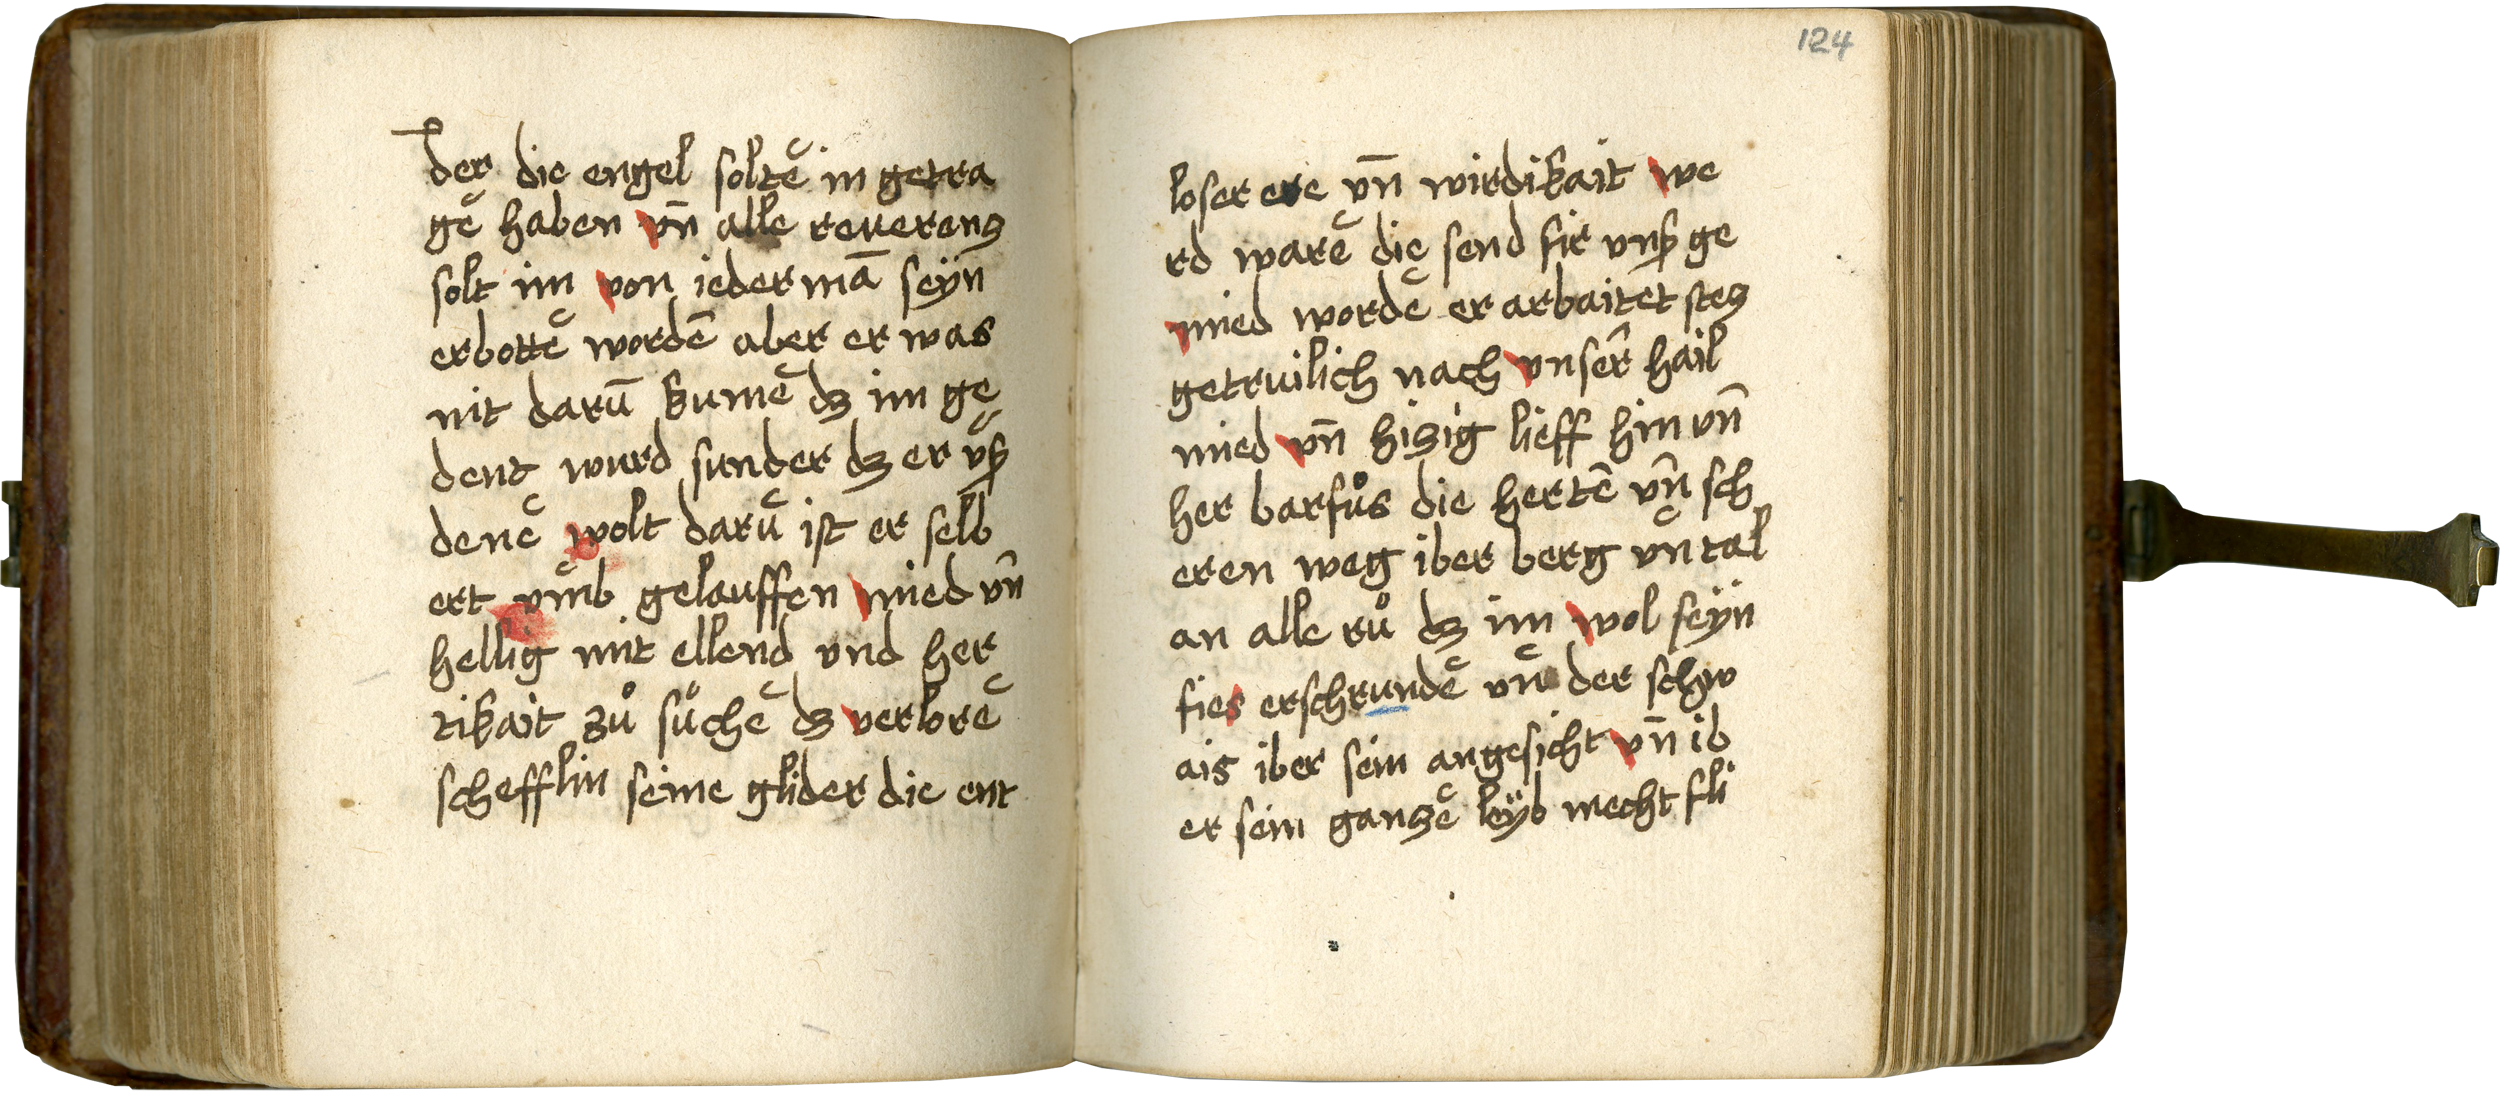 der die engel soltē in getra
gē haben vn̄ alle reuerenz
solt im von iederman̄ seÿn
erbottē wordē aber er was
nit darū kumē dz im ge
dent wurd sunder dz er vnß
denē wolt darū ist er selb
ert vmb gelauffen mied vn̄
hellig mit ellend vnd her
tikait zů sůchē dz verlorē
schefflin seine glider die ent
124
loser ere vn̄ wirdikait we
rd warē die send fir vnß ge
mied wordē er arbaitet stez
getruilich nach vnser̄ hail
mied vn̄ hizig lieff hin vn̄
her barfůs die hertē vn̄ sch
eren weg iber berg vn̄ tal
an alle rů dz im wol seÿn
fies erschrundē vn̄ der schw
ais iber sein angesicht vn̄ ib
er sein ganzē leÿb mecht fli